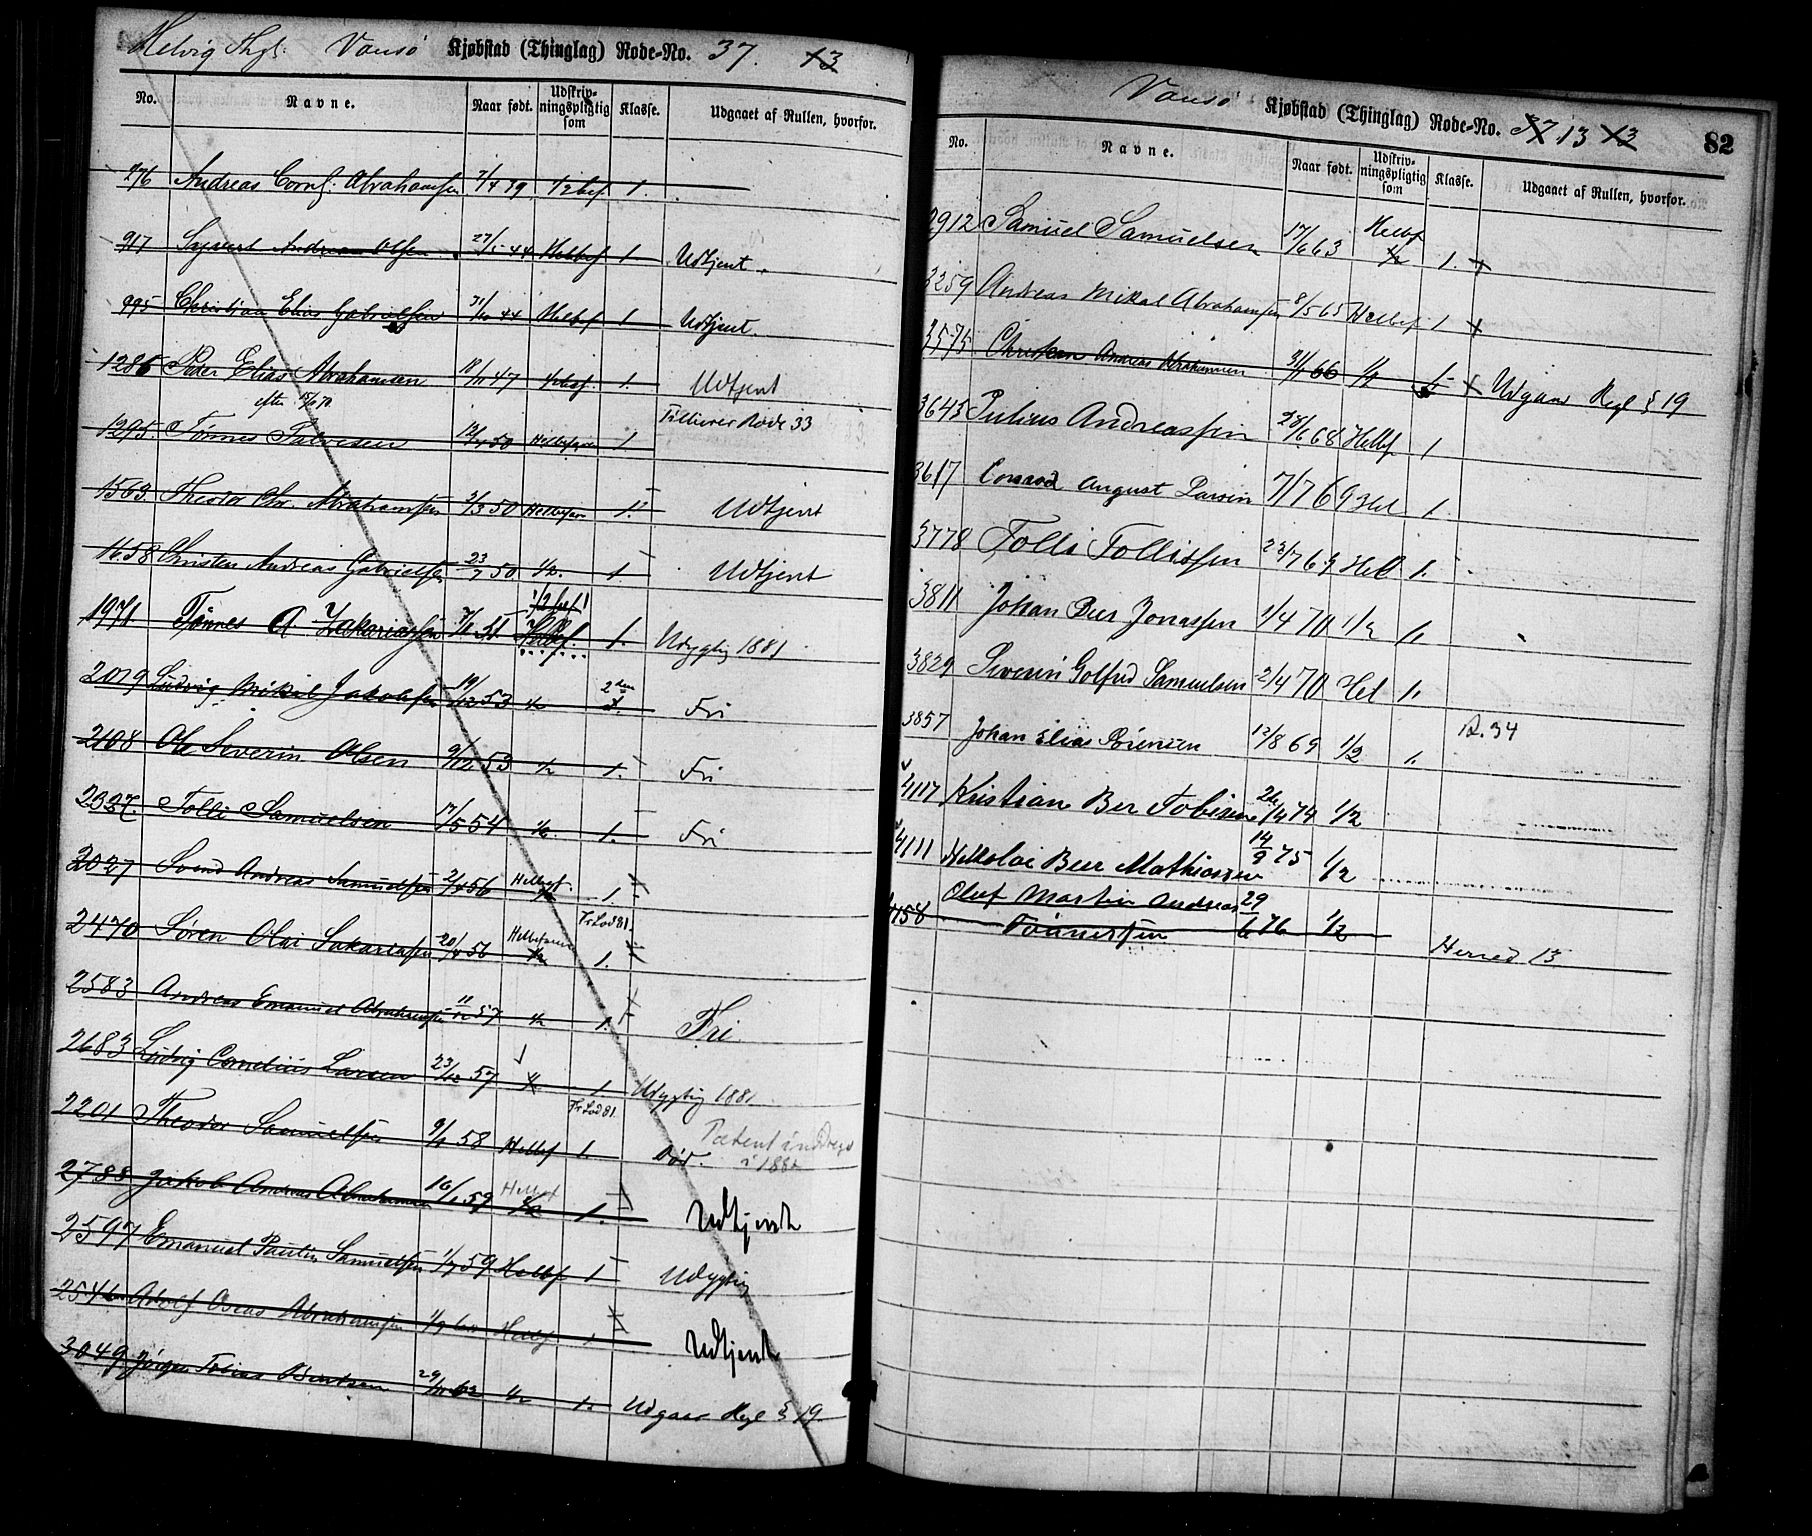 Helvig Thgl. Vansø Kjøbstad (Thinglag) Rode-No. 37. 13
No. Navne. Naar født. Udskriv-ningspligtig som Klasse. Udgaaet af Rullen, hvorfor.
276 Andreas Cornl. Abrahamsen 2/4 39 1/2 bef 1.
917 Syvert Andreas Olsen 27/5 44 Helbef 1 Udtjent.
995 Christian Elias Gabrielsen 31/10 44 Helbef 1 Udtjent.
1286 Peder Elias Abrahamsen 18/11 47 1. Udtjent
1295. Tønnes Salvesen 50 Helbefaren 1 Tilhører Rode 33
1563. Theodor Chr. Abrahamsen 3/3 50 Helbefaren 1. Udtjent
1658 Christen Andreas Gabrielsen 23/7 50 1/2. 1. Udtjent
1/2 bef
1971 Tønnes A. Zakariassen 51 Helbef. 1. Udygtig 1881
2079 Ludvig Mikal Jakobsen 19/12 53 1/2 2den Fri
2108 Ole Severin Olsen 9/12 53 1/2 1. Fri
2327. Tolli Samuelsen 17/5 54 1/2. 1. Fri
2027 Svend Andreas Samuelsen 2/4 56 1
Fr Lod 81.
2470 Søren Olai Sakariasen 20/4 56 Helbefaren 1/2 1.
2583 Andreas Emanuel Abrahamsen 57 1/2 1. Fri.
2683 Ludvig Cornelius Larsen 23/12 57 1/2 1 Udygtig 1881
Fr Lod 81.
2201 Theodor Samuelsen 9/1 58 Helbef 1. Død. Patent inddrags i 1882
2788 Jakob Andreas Abrahamsen 59 Helbef 1/2 1. Udtjent
2597 Emanuel Paulin Samuelsen 1/7 59 Helbf 1 Udygtig
2546 Adolf Oscar Abrahamsen 1/9 60 Helbf 1 Udtjent
3049 Jørgen Tobias Berntsen 29/11 62 1/2 1. Udgaar Regl § 19.
Vansø Kjøbstad (Thinglag) Rode-No. 37 13 13 82
No. Navne. Naar født. Udskriv-ningspligtig som Klasse. Udgaaet af Rullen, hvorfor.
2912 Samuel Samuelsen 17/6 63 Helbf 1/2 1.
3259 Andreas Mikal Abrahamsen 8/5 65 Helbef 1
3575 Christen Andreas Abrahamsen 66 1/2 1 Udgaar Regl § 19
3643 Julius Andreassen 28/6 68 Helbf 1
3617 Conrad August Larsen 7/7 69 Hel 1.
3778 Tolli Tollissen 23/7 69 Hel 1.
3811 Johan Beer Jonassen 1/4 70 1/2 1.
3829 Severin Gotfred Samuelsen 2/4 70 Hel 1.
3857 Johan Elias Sørensen 12/8 69 1/2 1. R. 34
4117 Kristian Ber Tobisen 26/4 74 1/2
4111 Nikolai Beer Mathiassen 14/9 75 1/2
4158 Oluf Martin Andreas 29/6 76 1/2
Tønnessen Herred 13